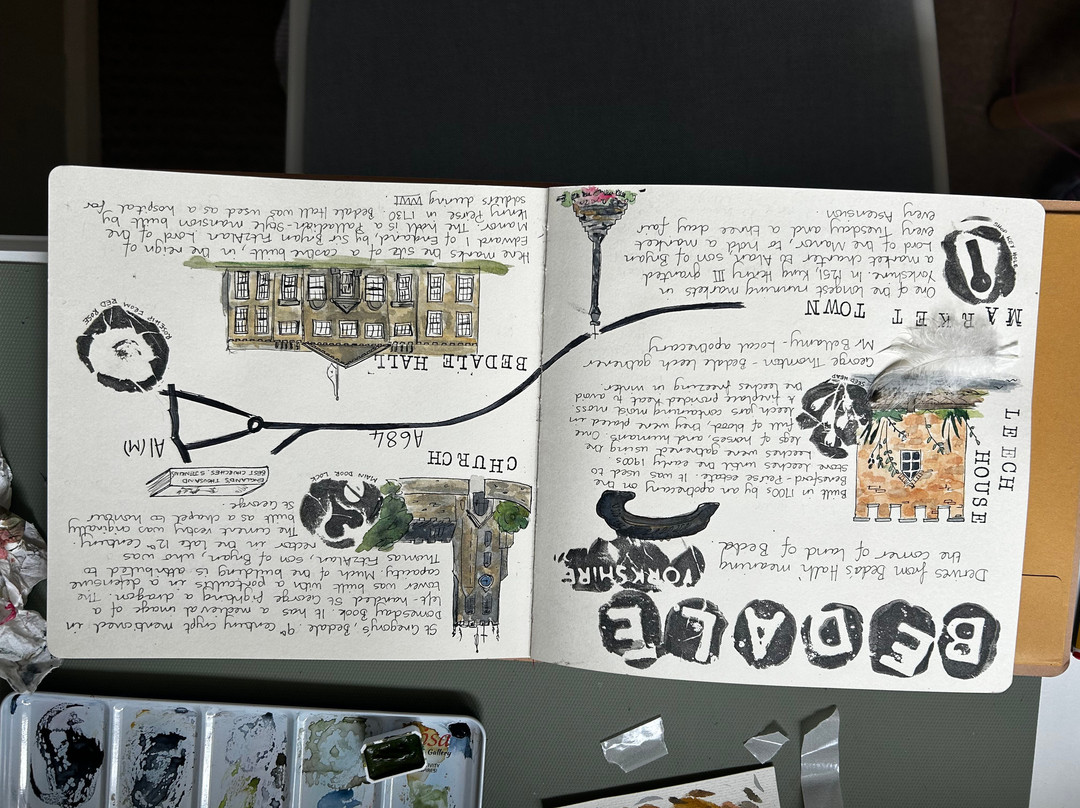 BEDALE
YORKSHIRE
Derives from Beda's Halh, meaning
the corner of land of Beda
LEECH
HOUSE
Built in 1700s by an apothecary on the
Beresford-Peirse estate. It was used to
store leeches until the early 1900s
Leeches were gathered using the
legs of horses, and humans. Once
full of blood, they were placed in
leech jars containing moist moss
A fireplace provided heat to avoid
the leeches freezing in winter.
SEED HEAD
George Thornton - Bedale leech gatherer
Mr Bellamy - Local apothecary
MARKET TOWN
One of the longest running markets in
Yorkshire. In 1251, King Henry III granted
a market charter to Alan son of Bryan
Lord of the Manor, to hold a market
every Tuesday and a three day fair
every Ascension
St Gregory's, Bedale. 9th Century crypt mentioned in
Domesday Book. It has a medieval image of a
left-handed St George fighting a dragon. The
tower was built with a portcullis in a defensive
capacity. Much of the building is attributed to
Thomas FitzAlan, son of Bryan, who was
rector in the late 12th century
The current vestry was originally
built as a chapel to honour
St George.
MAIN DOOR LOCK
ENGLAND'S THOUSAND
BEST CHURCHES S.JENKINS
CHURCH
A684
A1(M)
BEDALE HALL
ROSEHIP FROM RED ROSE
Here marks the site of a castle built in the reign of
Edward I of England, by Sir Bryan FitzAlan Lord of the
Manor. The hall is a Palladian-Style mansion built by
Henry Peirse in 1730. Bedale Hall was used as a hospital for
soldiers during WWI